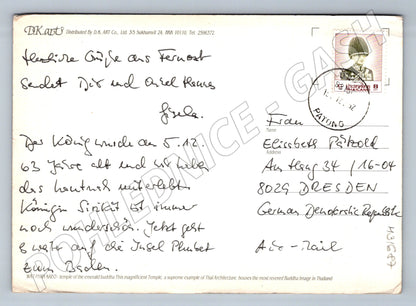 DK art Distributed By D.K. ART Co., Ltd. 3/5 Sukhumvit 24, BKK 10110. Tel. 2596272.
Herzliche Grüße aus Fernost
sendet Dir und Onkel Hannes
Gisela.
Der König wurde am 5.12.
63 Jahre alt und wir haben
das hautnah miterlebt.
Königin Sirikit ist immer
noch wunderschön. Jetzt geht
es weiter auf die Insel Phuket
zum Baden.
THAILAND
PATONG
Name
Frau
Elisabeth Pätzold
Address
Am Hang 34 / 16-04
8029 DRESDEN
German Democratic Republic
Air-Mail
WAT PHRA KAEO: temple of the emerald buddha This magnificent Temple, a supreme example of Thai Architecture, houses the most revered Buddha image in Thailand
POHLEDNICE - GASH